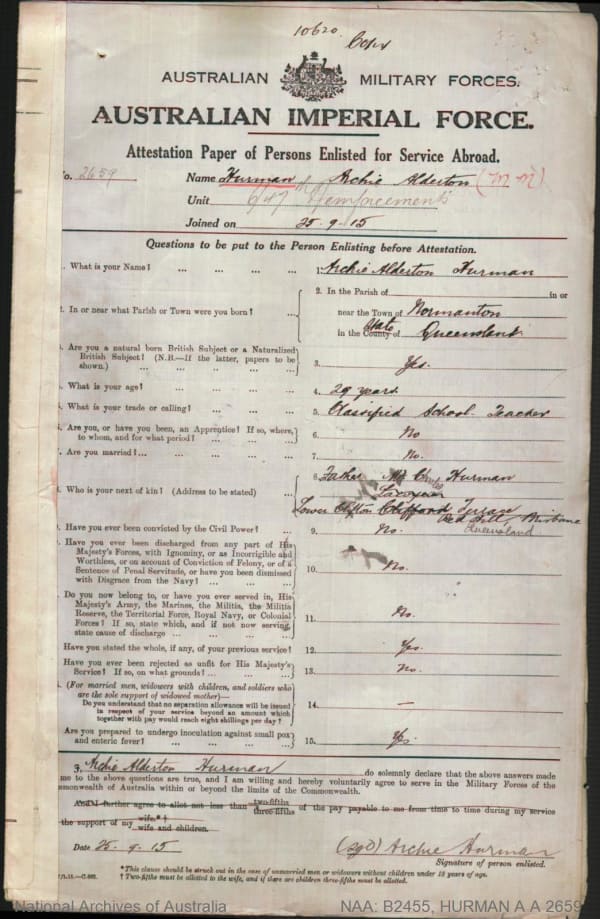 10620. Copy
AUSTRALIAN MILITARY FORCES.
AUSTRALIAN IMPERIAL FORCE.
Attestation Paper of Persons Enlisted for Service Abroad.
No. 2659 Name Hurman Archie Alderton (M M)
Unit 6/47th Reinforcements
Joined on 25.9.15
Questions to be put to the Person Enlisting before Attestation.
1. What is your Name? ... ... ... ... 1. Archie Alderton Hurman
2. In the Parish of in or
2. In or near what Parish or Town were you born? ... near the Town of Normanton
in the County of State Queensland
3. Are you a natural born British Subject or a Naturalized
British Subject? (N.B.—If the latter, papers to be
shown.) ... ... ... ... ... 3. Yes.
4. What is your age? ... ... ... ... 4. 29 years.
5. What is your trade or calling? ... ... ... 5. Classified School Teacher
6. Are you, or have you been, an Apprentice? If so, where,
to whom, and for what period? ... ... ... 6. No
7. Are you married? ... ... ... ... 7. No.
8. Father Mr Hurman
8. Who is your next of kin? (Address to be stated) ...
Lower Clifton Clifford Terrace
Red Hill, Brisbane
Queensland
9. Have you ever been convicted by the Civil Power? ... 9. No.
Have you ever been discharged from any part of His
Majesty's Forces, with Ignominy, or as Incorrigible and
Worthless, or on account of Conviction of Felony, or of a
Sentence of Penal Servitude, or have you been dismissed
with Disgrace from the Navy? ... ... ... 10. No.
Do you now belong to, or have you ever served in, His
Majesty's Army, the Marines, the Militia, the Militia
Reserve, the Territorial Force, Royal Navy, or Colonial
Forces? If so, state which, and if not now serving,
state cause of discharge ... ... ... 11. No.
Have you stated the whole, if any, of your previous service? 12. Yes.
Have you ever been rejected as unfit for His Majesty's
Service? If so, on what grounds? ... ... 13. No.
(For married men, widowers with children, and soldiers who
are the sole support of widowed mother)—
Do you understand that no separation allowance will be issued
in respect of your service beyond an amount which
together with pay would reach eight shillings per day? 14. —
Are you prepared to undergo inoculation against small pox
and enteric fever? ... ... ... ... 15. Yes.
I, Archie Alderton Hurman do solemnly declare that the above answers made
me to the above questions are true, and I am willing and hereby voluntarily agree to serve in the Military Forces of the
Commonwealth of Australia within or beyond the limits of the Commonwealth.
And I further agree to allot not less than two-fifths three-fifths of the pay payable to me from time to time during my service
the support of my wife.*† wife and children.
Date 25.9.15 (sgd) Archie Hurman
Signature of person enlisted.
*This clause should be struck out in the case of unmarried men or widowers without children under 18 years of age.
† Two-fifths must be allotted to the wife, and if there are children three-fifths must be allotted.
National Archives of Australia NAA: B2455, HURMAN A A 2659